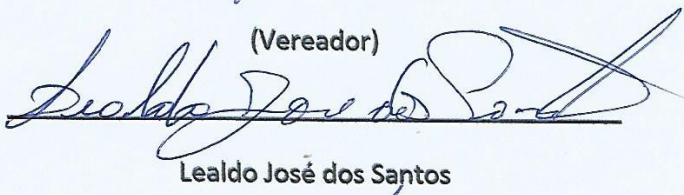 (Vereador)
Lealdo José dos Santos
Lealdo José dos Santos